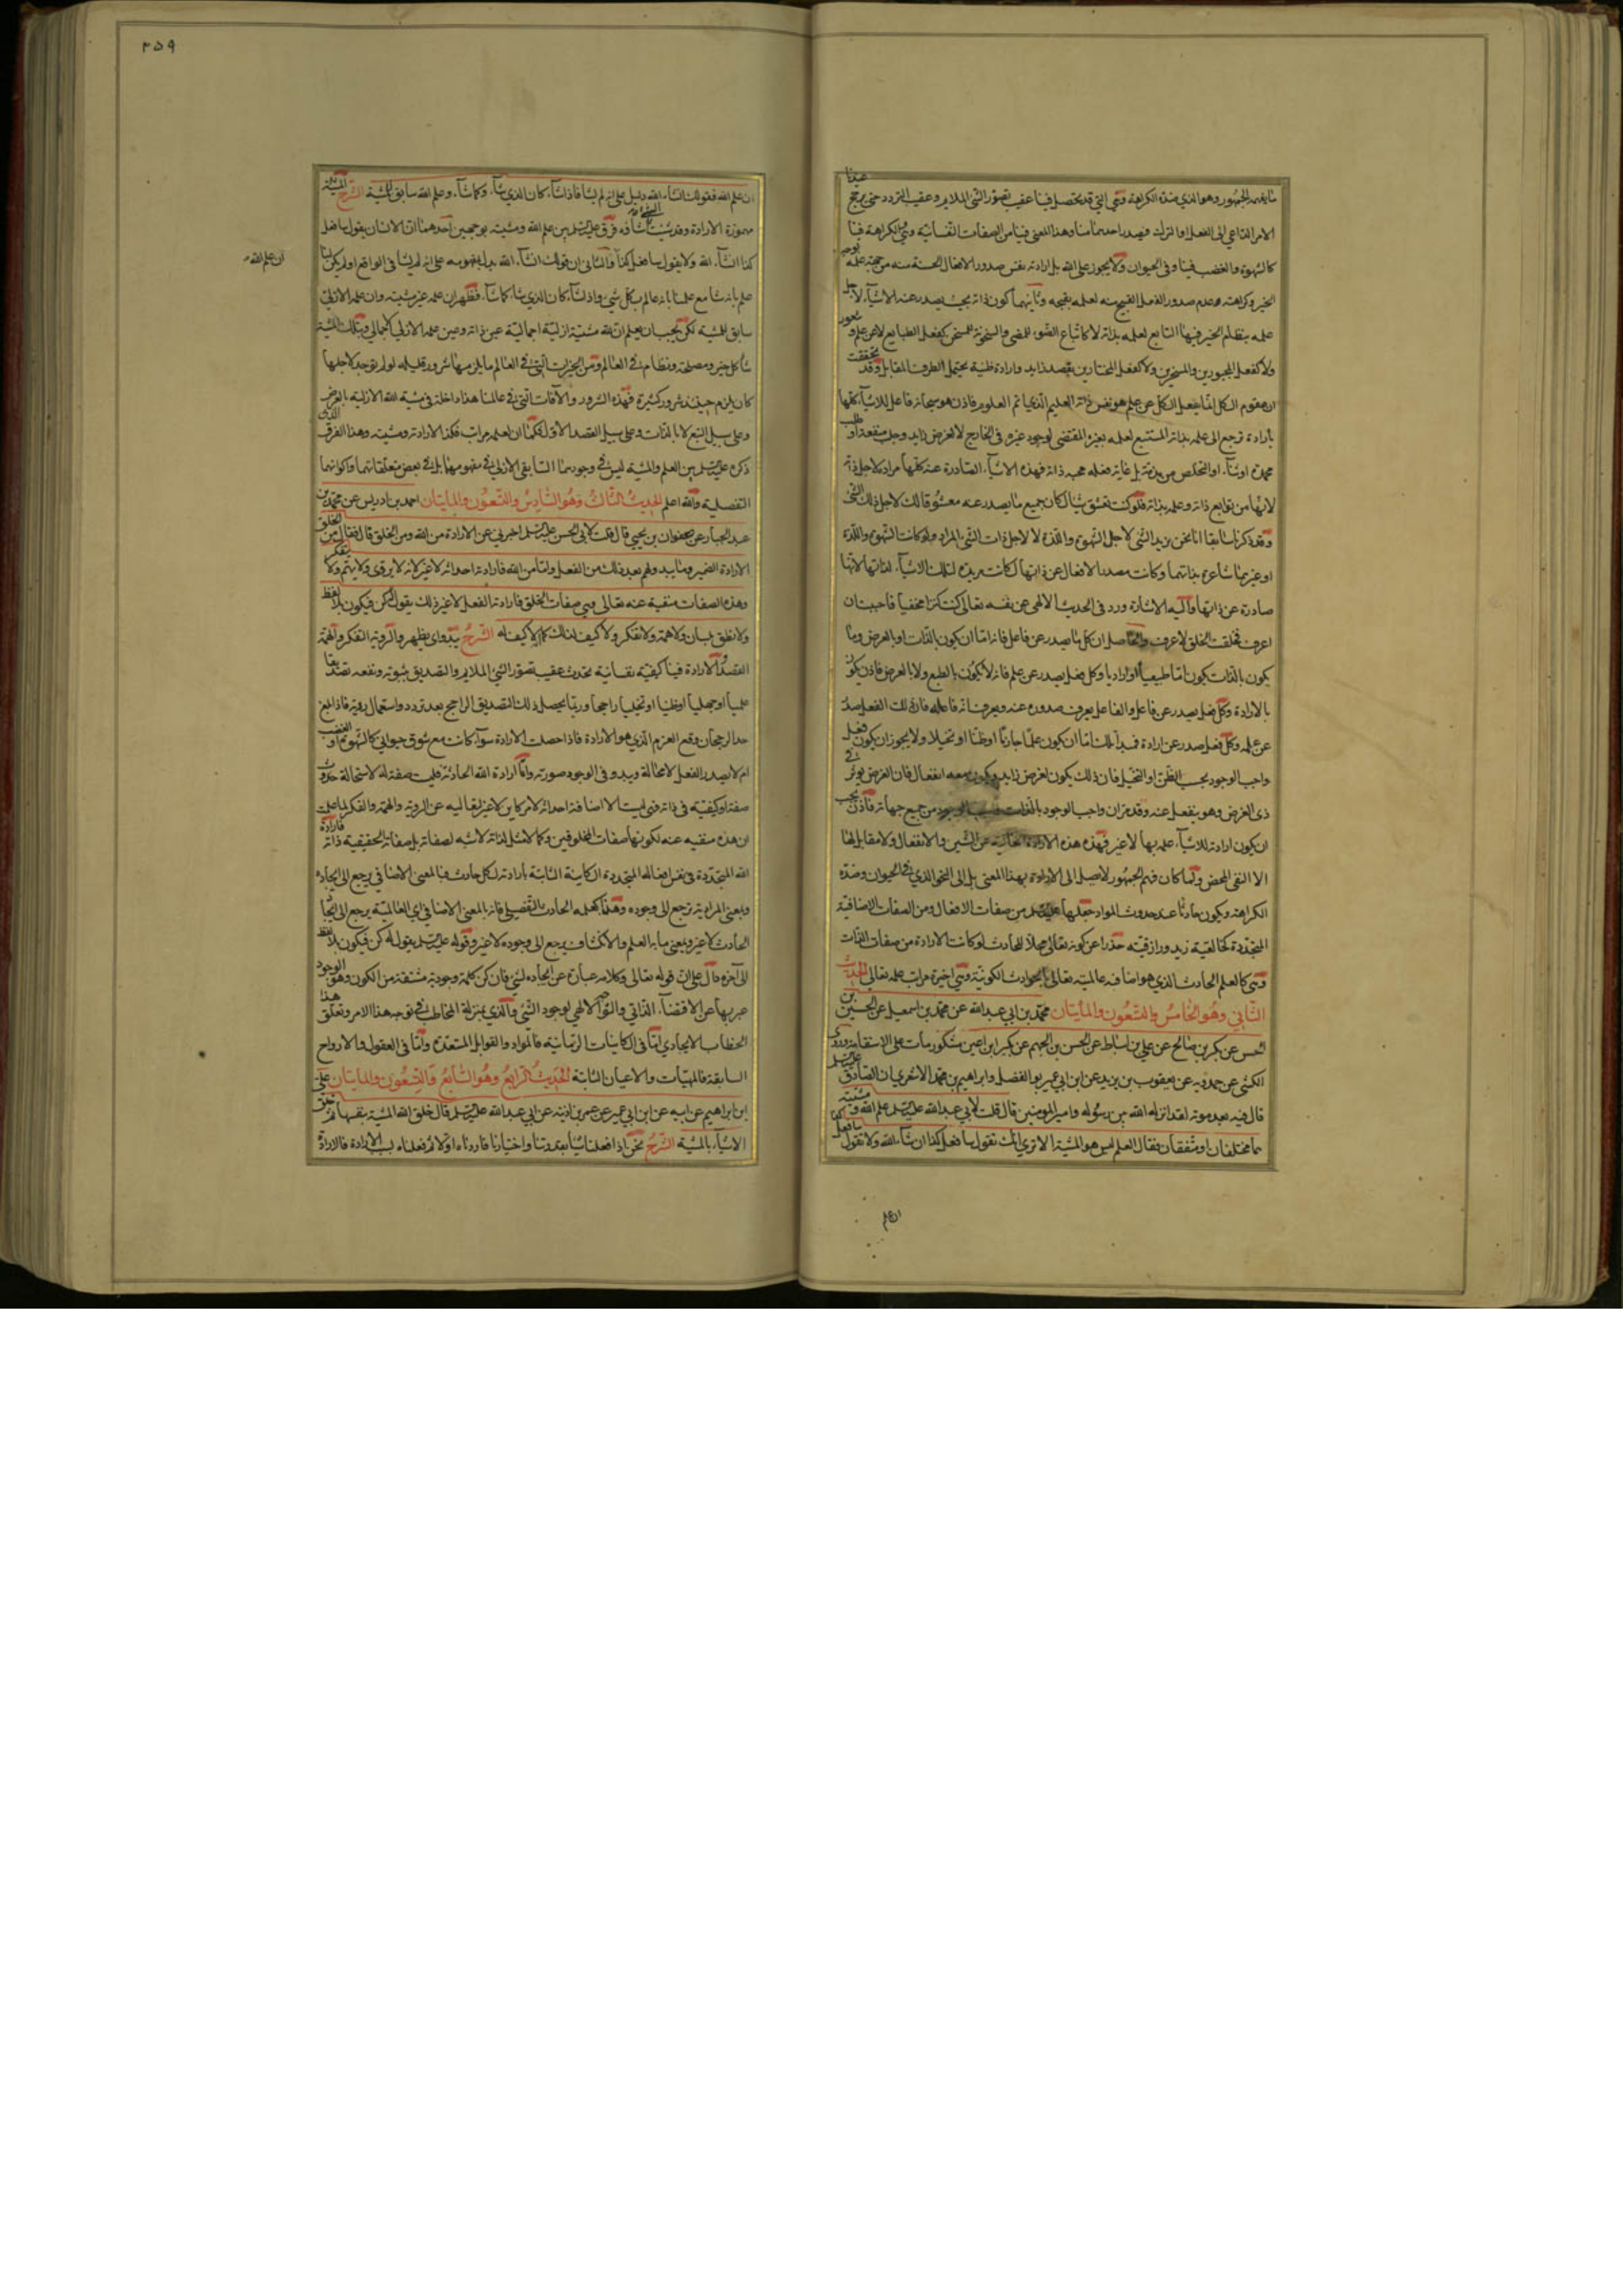 ما يفهمه الجمهور وهو الذي ضده الكراهة وهي التي قد تحصل فينا عقيب تصور الشئ الملايم وعقيب التردد حتى يترجح عندنا
الامر الداعي الى الفعل او الترك فيصدر احدهما منا وهذا المعنى فينا من الصفات النفسانية وهي والكراهة فينا
كالشهوة والغضب فينا وفي الحيوان ولا يجوز على الله بل ارادته نفس صدور الافعال الحسنة منه من جهة علمه بوجه
الخير وكراهته عدم صدور الفعل القبيح منه لعلمه بقبحه وثانيهما كون ذاته بحيث يصدر عنه الاشياء لاجل
علمه بنظام الخير فيها التابع لعلمه بذاته لا كاتباع الضوء للمضئ والسخونة للمسخن كفعل الطبايع لا عن علم وشعور
ولا كفعل المجبورين والمسخرين ولا كفعل المختارين بقصد زايد وارادة ظنية يحتمل الطرف المقابل وقد تحققت
ان مقوم الكل انما يفعل الكل عن علم هو نفس ذاته العليم الذي اتم العلوم فاذن هو سبحانه فاعل للاشياء كلها
بارادة ترجع الى علمه بذاته المستتبع لعلمه بغيره المقتضي لوجود غيره في الخارج لا لغرض زايد وجلب منفعة او طلب
محمدة او ثناء او التخلص من مذمة بل غاية فعله محبة ذاته فهذه الاشياء الصادرة عنه كلها مرادة لاجل ذاته
لانها من توابع ذاته وعلمه بذاته فلو كنت تعشق شيئا لكان جميع ما يصدر عنه معشوقا لك لاجل ذلك الشئ
وقد ذكرنا سابقا انا نحن نريد الشئ لاجل الشهوة واللذة لا لاجل ذات الشئ المراد ولو كانت الشهوة واللذة
او غيرهما شاعرة بذاتها وكانت مصدر الافعال عن ذاتها لكانت مريدة لتلك الاشياء لذاتها لانها
صادرة عن ذاتها واليه الاشارة ورد في الحديث الالهي عن نفسه تعالى كنت كنزا مخفيا فاحببت ان
اعرف فخلقت الخلق لاعرف والحاصل ان كل ما يصدر عن فاعل فانه اما ان يكون بالذات او بالعرض وما
يكون بالذات يكون اما طبيعيا او اراديا وكل فعل يصدر عن علم فانه لا يكون بالطبع ولا بالعرض فاذن يكون
بالارادة وكل فعل يصدر عن فاعل والفاعل يعرف صدوره عنه ويعرف انه فاعله فان ذلك الفعل صدر
عن علمه وكل فعل صدر عن ارادة فمبدأ ذلك اما ان يكون علما جازما او ظنا او تخيلا ولا يجوز ان يكون فعل
واجب الوجود بحسب الظن او التخيل فان ذلك يكون لغرض زايد ويكون معه انفعال فان الغرض يؤثر في
ذي الغرض وهو ينفعل عنه وقد مر ان واجب الوجود بالذات واجب الوجود من جميع جهاته فاذن يجب
ان يكون ارادته للاشياء علمه بها لا غير فهذه هذه الارادة الخالية عن الشين والانفعال ولا مقابل لها
الا النفي المحض ولما كان فهم الجمهور لا يصل الى الارادة بهذا المعنى بل الى النحو الذي في الحيوان وضده
الكراهة ويكون حادثا عند حدوث المراد جعلها عليه السلم من صفات الافعال ومن الصفات الاضافية
المتجددة كخالقيته زيد ورازقيته حذرا عن كونه تعالى محلا للحادث لو كانت الارادة من صفات الذات
وهي كالعلم الحادث الذي هو اضافة عالميته تعالى بالحوادث الكونية وهي اخيرة مراتب علمه تعالى الحديث
الثاني وهو الخامس والتسعون والمايتان محمد بن ابي عبدالله عن محمد بن اسمعيل عن الحسين بن
الحسن عن بكر بن صالح عن علي بن اسباط عن الحسن بن الجهم عن بكير ابن اعين مشكور مات على الاستقامة روى
الكشي عن حمدويه عن يعقوب بن يزيد عن ابن ابي عمير والفضل وابراهيم بن محمد الاشعريان الصادق عليه السلم
قال فيه بعد موته لقد انزله الله بين رسوله وامير المؤمنين قال قلت لابي عبدالله عليه السلم علم الله ومشيته
هما مختلفان او متفقان فقال العلم ليس هو المشية الا ترى انك تقول سافعل كذا ان شاء الله ولا تقول سافعل كذا
ان علم
٣٥٩
ان علم الله فقولك ان شاء الله دليل على انه لم يشا فاذا شاء كان الذي شاء كما شاء وعلم الله سابق للمشية الشرح المشية
مهموزة الارادة وقد شئت الشئ اشاءه فرق عليه السلم بين علم الله ومشيته بوجهين احدهما ان الانسان يقول سافعل
كذا ان شاء الله ولا يقول سافعل كذا ان علم الله والثاني ان قولك ان شاء الله يدل بمفهومه على انه لم يشا في الواقع اولم يكن لنا
علم بانه شا مع علمنا بانه عالم بكل شي واذا شاء كان الذي شاء كما شاء فظهر ان علمه غير مشيته وان علمه الازلي
سابق للمشية لكن يجب ان يعلم ان لله مشية ازلية اجمالية عين ذاته وعين علمه الازلي الكمالي وبتلك المشية
شاء كل خير ومصلحة ونظام في العالم ومن الخيرات التي في العالم ما يلزمها شرور قليلة لو لم توجد لاجلها
كان يلزم حينئذ شرور كثيرة فهذه الشرور والآفات التي في عالمنا هذا داخلة في مشية الله الازلية بالعرض
وعلى سبيل التبع لا بالذات وعلى سبيل القصد الاول فكما ان لعلمه مراتب فكذا لارادته ومشيته وهذا الفرق الذي
ذكره عليه السلم بين العلم والمشية ليس في وجودهما السابقي الازلي في مفهومهما بل في بعض متعلقاتهما واكوانهما
التفصيلية والله اعلم الحديث الثالث وهو السادس والتسعون والمايتان احمد بن ادريس عن محمد بن
عبد الجبار عن صفوان بن يحيى قال قلت لابي الحسن عليه السلم اخبرني عن الارادة من الله ومن الخلق قال فقال من الخلق
الارادة الضمير وما يبدو لهم بعد ذلك من الفعل واما من الله فارادته احداثه لا غير لانه لا يروى ولا يهم ولا يتفكر
وهذه الصفات منفية عنه تعالى وهي صفات الخلق فارادته الفعل لا غير ذلك يقول له كن فيكون بلا لفظ
ولا نطق بلسان ولا همة ولا تفكر ولا كيف لذلك كما لا كيف له الشرح يبدو اي يظهر والروية التفكر والهمة
القصد والارادة فينا كيفية نفسانية تحدث عقيب تصور الشئ الملايم والتصديق بثبوته ونفعه تصديقا
علميا او جهليا او ظنيا او تخيليا راجحا وربما يحصل ذلك التصديق الراجح بعد تردد واستعمال روية فاذا بلغ
حد الرجحان وقع العزم الذي هو الارادة فاذا حصلت الارادة سواء كانت مع شوق حيواني كالشهوة او الغضب
ام لا يصدر الفعل لا محالة ويبدو في الوجود صورته واما ارادة الله الحادثة فليست صفة له لاستحالة حدوث
صفة او كيفية في ذاته فهي ليست الا اضافة احداثه لامر كاين لا غير لتعاليه عن الروية والهمة والفكر لما علمت
ان هذه منفيه عنه لكونها صفات المخلوقين وكما لا مثل لذاته لا شبه لصفاته بل صفاته الحقيقية ذاته فارادة
الله المتجددة هي نفس افعاله المتجددة الكاينة الثابتة بارادته لكل حادث فالمعنى الاضافي يرجع الى ايجاده
وبمعنى المرادية ترجع الى وجوده وهكذا كعلمه الحادث بالتفصيل فانه بالمعنى الاضافي اي العالمية يرجع الى ايجاد
الحادث لا غير وبمعنى ما به العلم والانكشاف يرجع الى وجوده لا غير وقوله عليه السلم يقول له كن فيكون بلا لفظ
الى آخره دال على ان قوله تعالى وكلامه عبارة عن ايجاده لشئ فان كن كلمة وجودية مشتقة من الكون وهو الوجود
عبر بها عن الاقتضاء الذاتي والتوجه الالهي لوجود الشئ والذي بمنزلة المخاطب في توجه هذا الامر وتعلق هذا
الخطاب الايجادي اما في الكاينات الزمانية فالمواد والقوابل المستعدة واما في العقول والارواح
السابقة فالمهيات والاعيان الثابتة الحديث الرابع وهو السابع والتسعون والمايتان علي
ابن ابراهيم عن ابيه عن ابن ابي عمير عن عمر بن اذينة عن ابي عبدالله عليه السلم قال خلق الله المشية بنفسها ثم خلق
الاشياء بالمشية الشرح نحن اذا فعلنا شيئا بقدرتنا واختيارنا فاردناه اولا ثم فعلناه بسبب الارادة فالارادة
ان علم الله